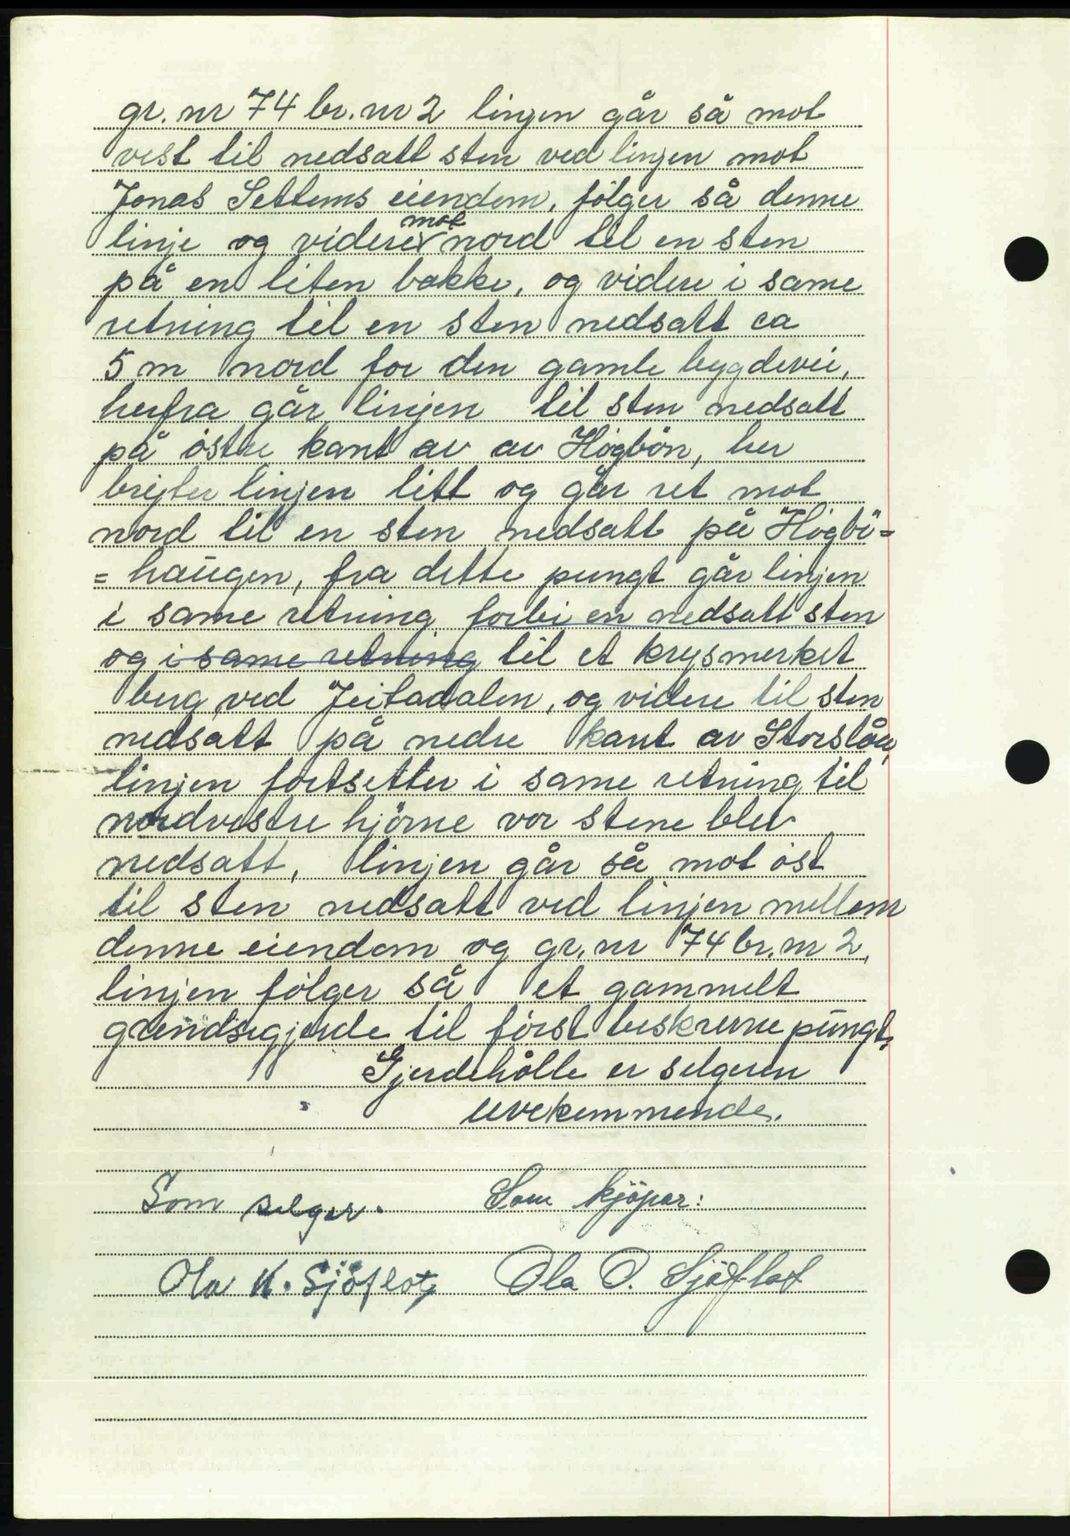 gr. nr 74 br. nr 2 linjen går så mot
vest til nedsatt sten ved linjen mot
Jonas Settems eiendom, følger så denne
linje og videre mot nord til en sten
på en liten bakke, og videre i same
retning til en sten nedsatt ca
5 m nord for den gamle bygdevei,
herfra går linjen til sten nedsatt
på östre kant av av Högbön, her
brejter linjen litt og går ret mot
nord til en sten nedsatt på Högbö=
=haugen, fra dette pungt går linjen
i same retning forbi en nedsatt sten
og i same retning til et krysmerket
berg ved Jeitadalen, og videre til sten
nedsatt på nedre kant av Storslåen,
linjen fortsetter i same retning til
nordvestre hjörne vor stene blev
nedsatt, linjen går så mot öst
til sten nedsatt ved linjen mellem
denne eiendom og gr. nr 74 br. nr 2,
linjen følger så et gammelt
grændsegjerde til först beskrevne pungt,
Gjerdehålle er selgeren
uvekommende.
Som selger.
Som kjöper:
Ola K. Sjöflot
Ola O. Sjöflot